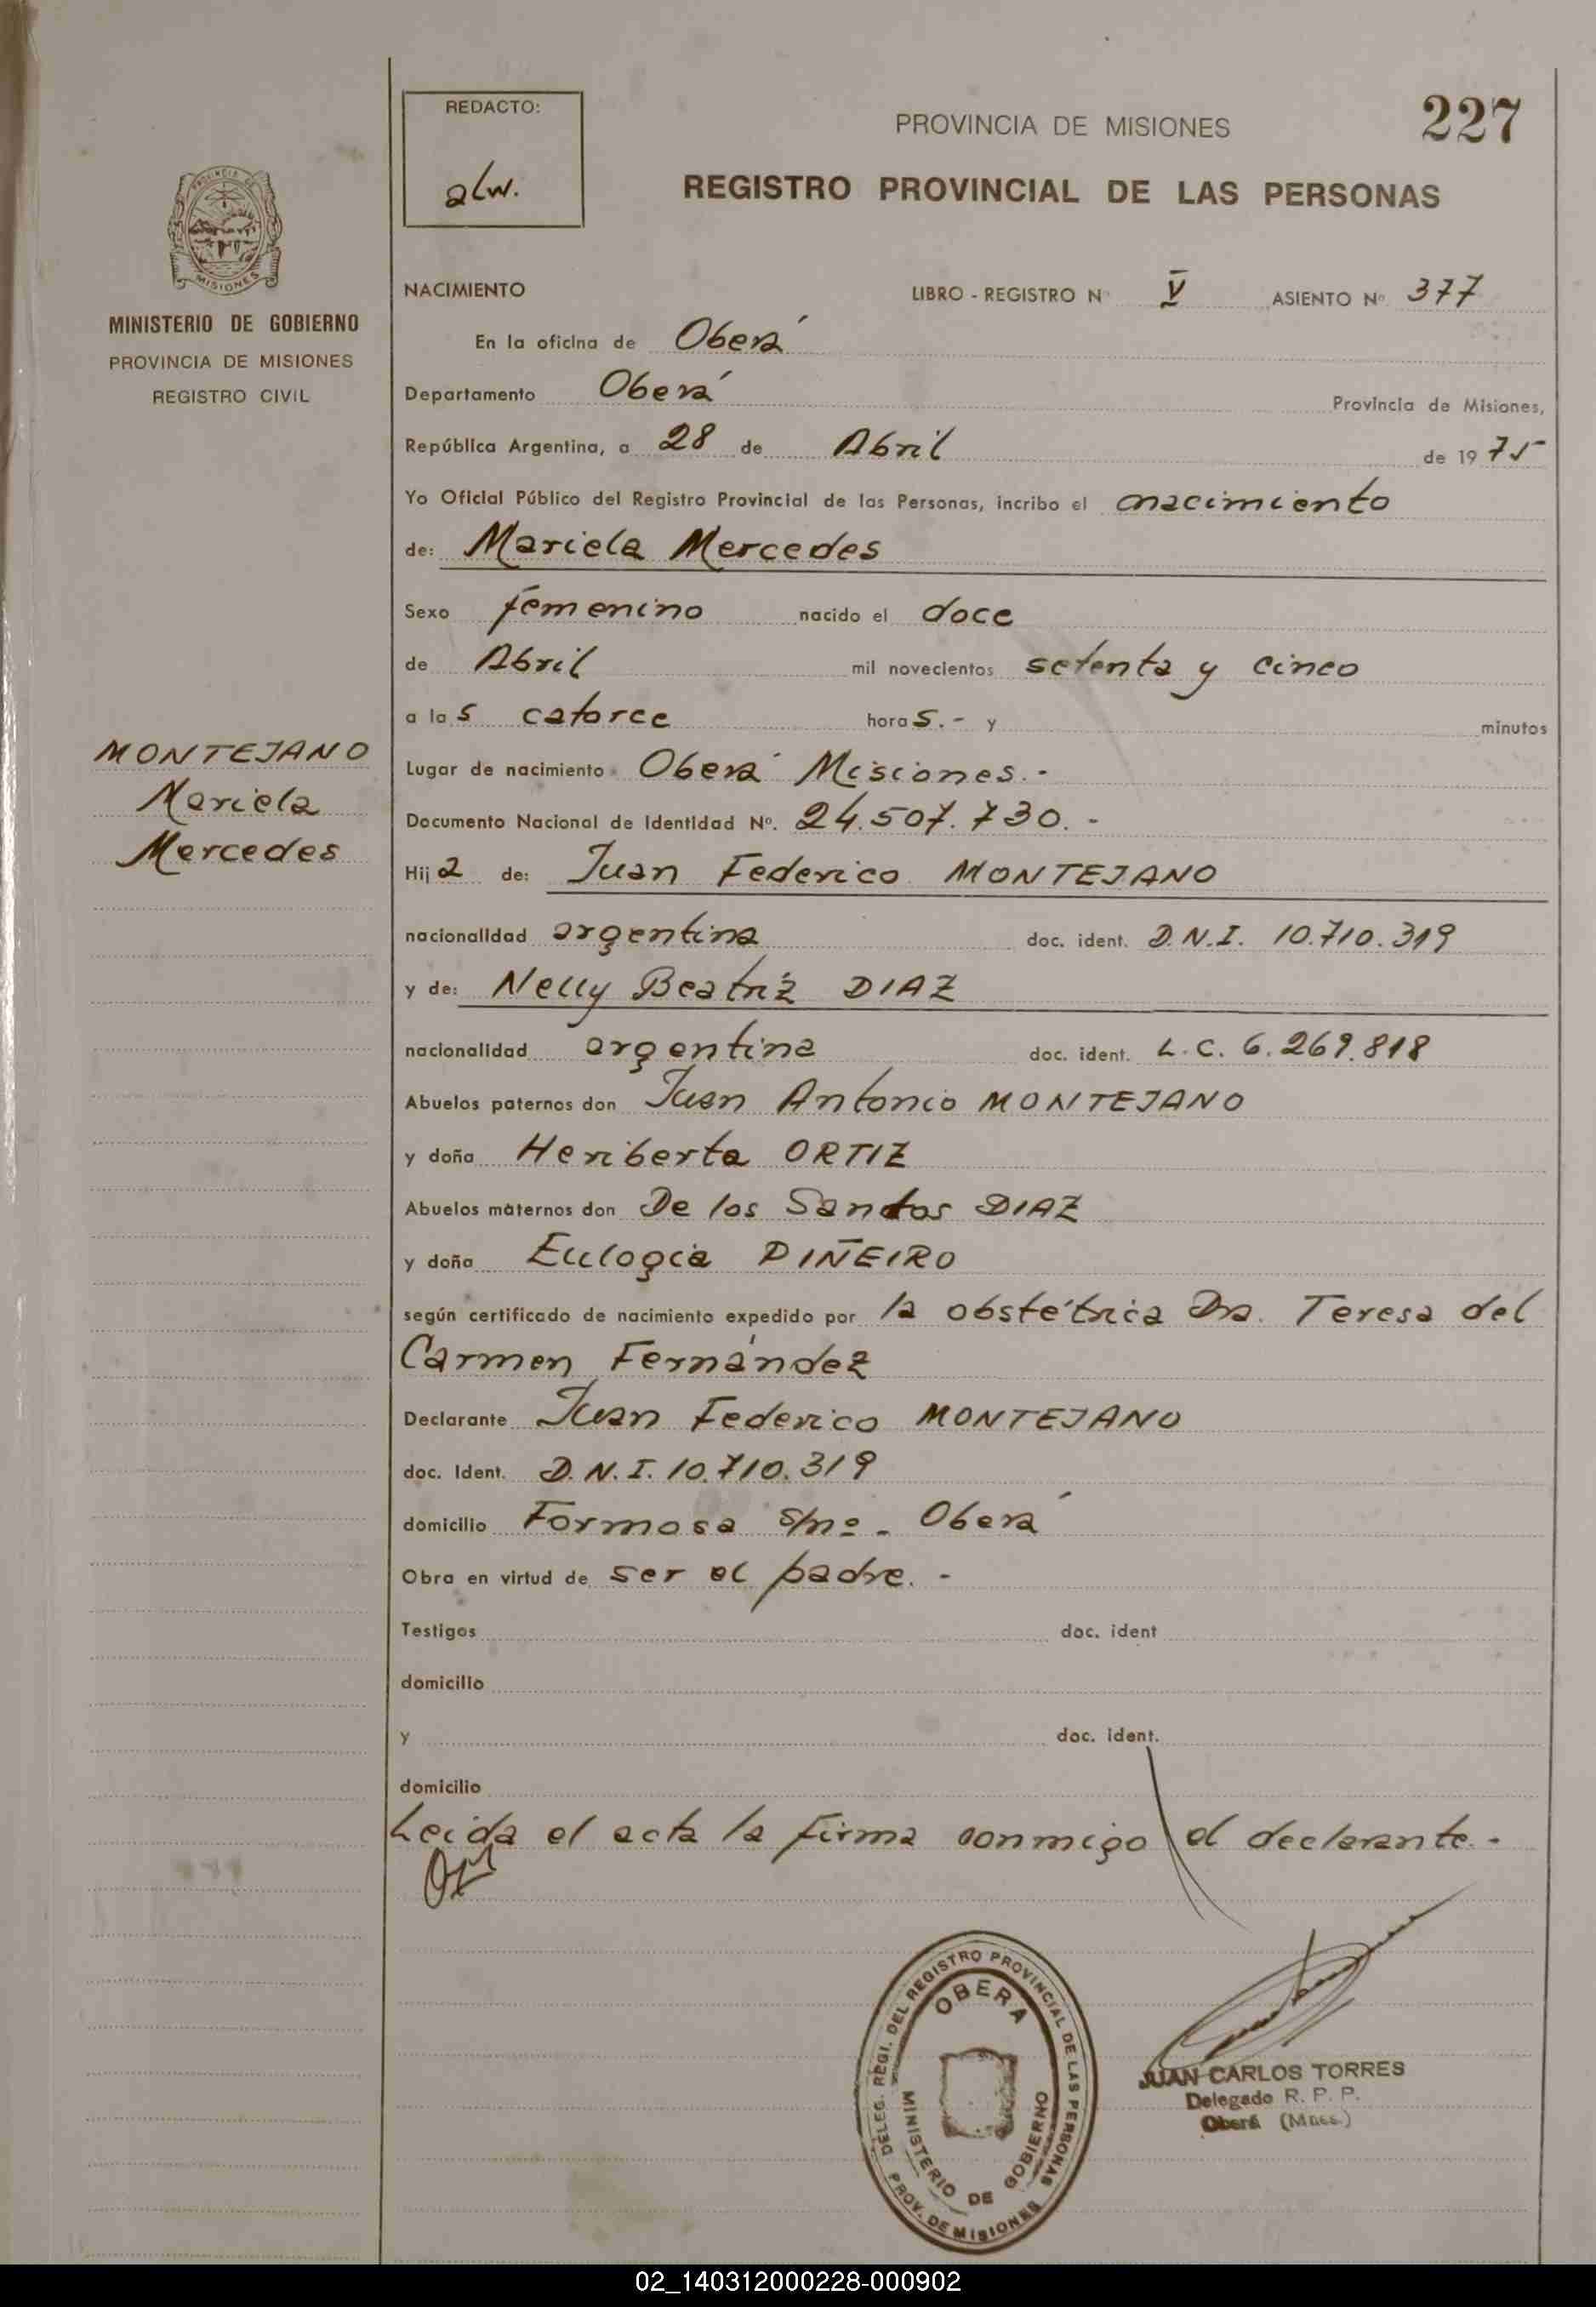 REDACTO:
alw.
227
PROVINCIA DE MISIONES
REGISTRO PROVINCIAL DE LAS PERSONAS
PROVINCIA DE
MISIONES
MINISTERIO DE GOBIERNO
PROVINCIA DE MISIONES
REGISTRO CIVIL
NACIMIENTO LIBRO - REGISTRO Nº V ASIENTO Nº 377
En la oficina de Oberá
Departamento Oberá Provincia de Misiones,
República Argentina, a 28 de Abril de 1975
Yo Oficial Público del Registro Provincial de las Personas, incribo el nacimiento
de: Mariela Mercedes
Sexo femenino nacido el doce
de Abril mil novecientos setenta y cinco
a las catorce horas.- y minutos
MONTEJANO
Mariela
Mercedes
Lugar de nacimiento Oberá Misiones.-
Documento Nacional de Identidad Nº. 24.507.730.-
Hija de: Juan Federico MONTEJANO
nacionalidad argentina doc. ident. D.N.I. 10.710.319
y de: Nelly Beatriz DIAZ
nacionalidad argentina doc. ident. L.C. 6.269.818
Abuelos paternos don Juan Antonio MONTEJANO
y doña Heriberta ORTIZ
Abuelos maternos don De los Santos DIAZ
y doña Eulogia PIÑEIRO
según certificado de nacimiento expedido por la obstétrica Dra. Teresa del
Carmen Fernández
Declarante Juan Federico MONTEJANO
doc. Ident. D.N.I. 10.710.319
domicilio Formosa s/nº - Oberá
Obra en virtud de ser el padre.-
Testigos doc. ident
domicilio
y doc. ident.
domicilio
Leida el acta la firma conmigo el declarante.-
DELEG. REGI. DEL REGISTRO PROVINCIAL DE LAS PERSONAS
OBERA
MINISTERIO DE GOBIERNO
PROV. DE MISIONES
JUAN CARLOS TORRES
Delegado R. P. P.
Oberá (Mnes.)
02_140312000228-000902